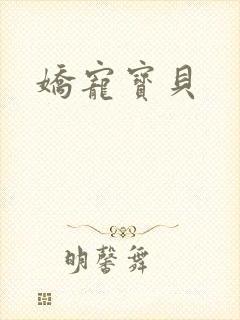 嬌寵寶貝
明馨舞